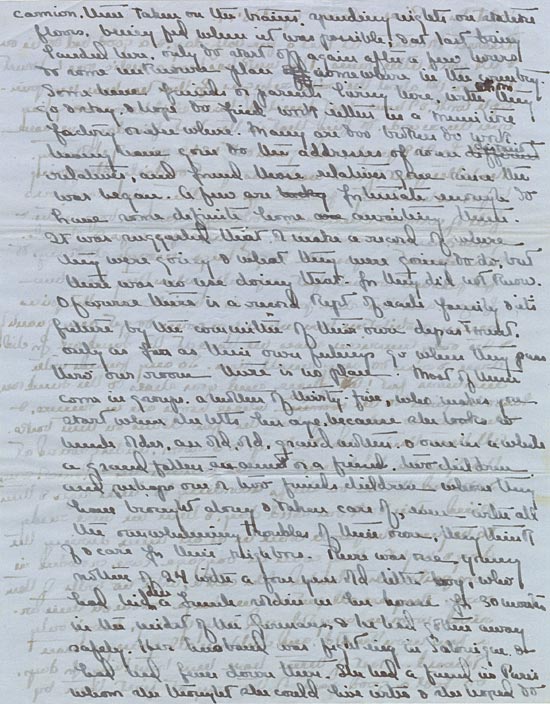 camion, then taken on the trains, spending nights on station
floors, being fed when it was possible, & at last being
landed here, only to start off again after a few hours
to some unknown place somewhere in the country.
Some have friends or parents living here, with them they
go & stay, & hope to find work either in a munition
factory or elsewhere. Many are too broken to work.
Many have gone to the addresses of some
relatives, and found those relatives gone since the
war began. A few are fortunate enough to
have some definite home awaiting them.
It was suggested that I make a record of where
they were going & what they were going to do, but
there was no use doing that. For they did not know.
Of course there is a record kept of each family & its
future by the committee of their own department.
only as far as their own feelings go when they pass
thro our room there is no plan. Most of them
come in groups. a mother of thirty-five, who makes you
start when she tells her age, because she looks so
much older, an old, old, grandmother, & once in a while
a grandfather, an aunt or a friend, two children
and perhaps one or two friends children whom they
have brought along & taken care of, even with all
the overwhelming troubles of their own, they think
of & care for their neighbors. There was one, young
mother of 24 with a four year old little boy, who
had hid a French soldier in her house for 30 months
in the midst of the Germans, & he had gotten away
safely. Her husband was fighting in Salonique, &
had had fever down there. She had a friend in Paris
whom she thought she could live with & she hoped to